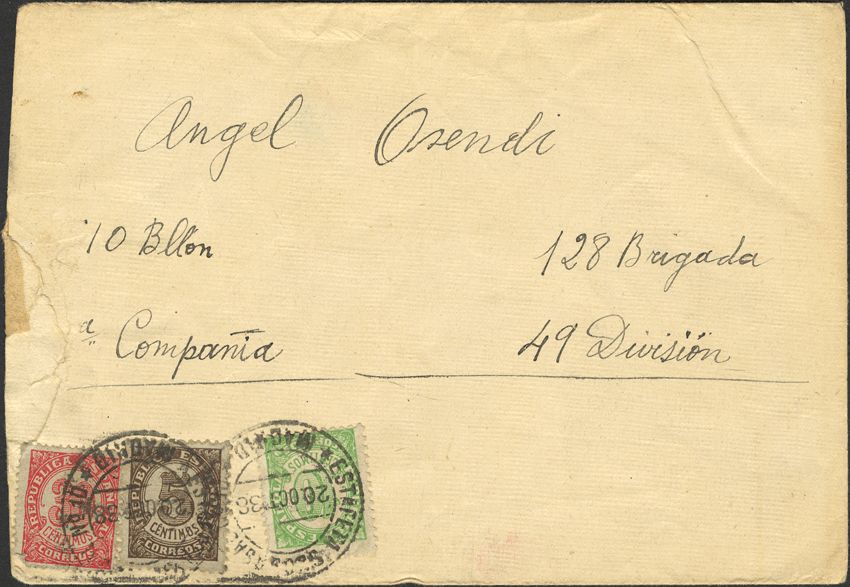 Angel Osendi
10 Bllon 128 Brigada
ª Compañia 49 División
REPUBLICA
CENTIMOS
CORREOS
REPUBLICA ESPAÑOLA
5
CENTIMOS
CORREOS
MADRID
20 OCT 38
MADRID * ESTAFETA
20 OCT 38